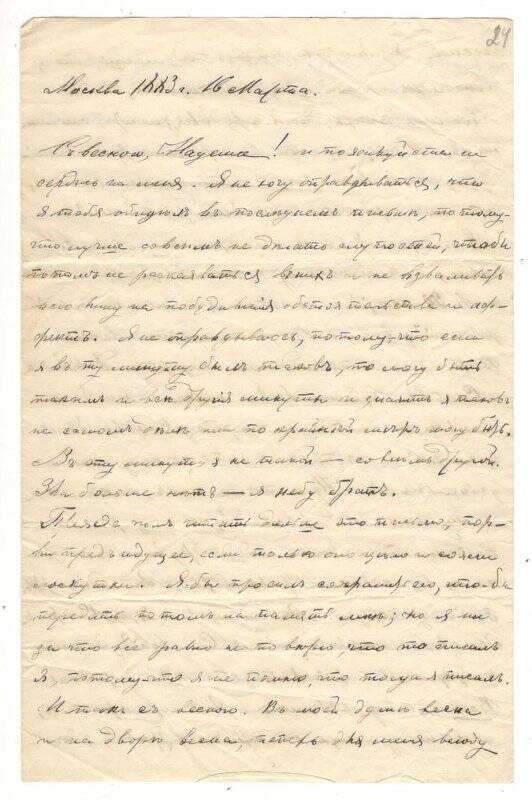 24
Москва 1883 г. 16 Марта.
Съ весною, Надежда! и пожалуйста не
сердись на меня. Я не могу оправдываться, что
я тебя обидѣлъ въ послѣднемъ письмѣ, потому-
что лучше совсѣмъ не дѣлать глупостей, чтобы
потомъ не раскаяваться въ нихъ и не взваливать
всю вину на побудившія обстоятельства и аф-
фектъ. Я не оправдываюсь, потому-что если
я въ ту минуту былъ таковъ, то могу быть
такимъ и въ другія минуты и значитъ я таковъ
на самомъ дѣлѣ или по крайней мѣрѣ могу быть.
Въ эту минуту я не такой — совсѣмъ другой.
Зла больше нѣтъ — я небу братъ.
Прежде, чѣмъ читать дальше это письмо, пор-
ви предъидущее, если только оно цѣло и сожги
лоскутки. Я бы просилъ сохранить его, что-бы
передать потомъ на память мнѣ; но я ни
за что все равно не повѣрю что то писалъ
я, потому-что я не помню, что тогда я писалъ.
И такъ съ весною. Въ моей душѣ весна
и на дворѣ весна, теперь для меня всюду